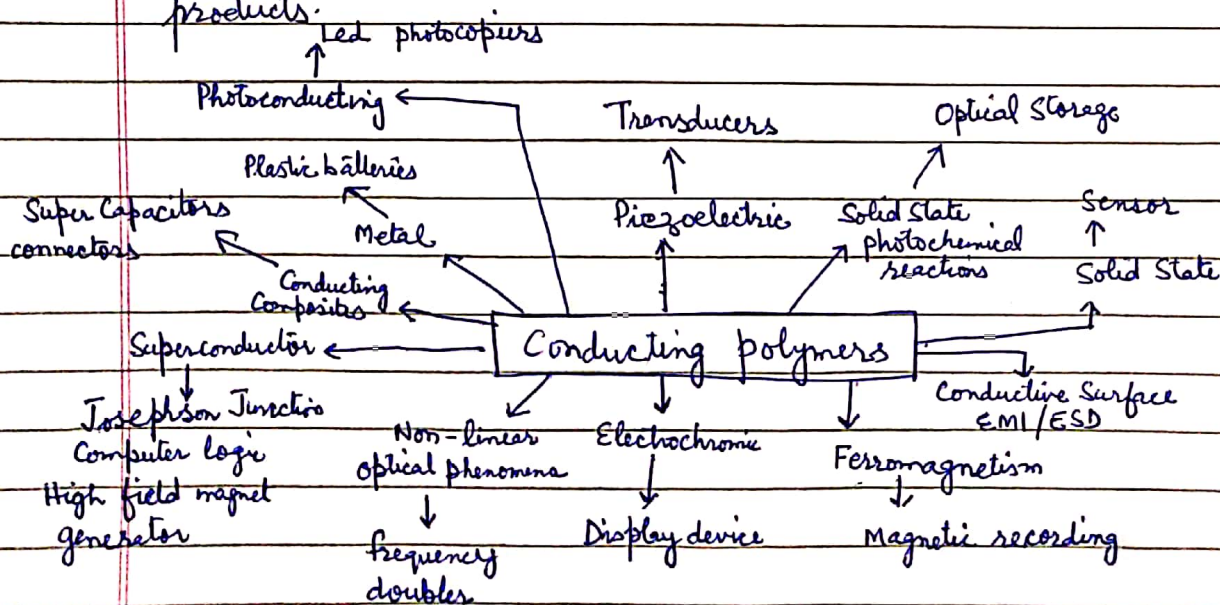 products.
Led photocopiers
Photoconducting
Transducers
Optical Storage
Plastic batteries
Super Capacitors
connectors
Metal
Piezoelectric
Solid State
photochemical
reactions
Sensor
Solid State
Conducting
Composites
Superconductor
Conducting polymers
Conductive Surface
EMI/ESD
Josephson Junctio
Computer logic
High field magnet
generator
Non-linear
optical phenomena
Electrochromic
Ferromagnetism
frequency
doubles
Display device
Magnetic recording